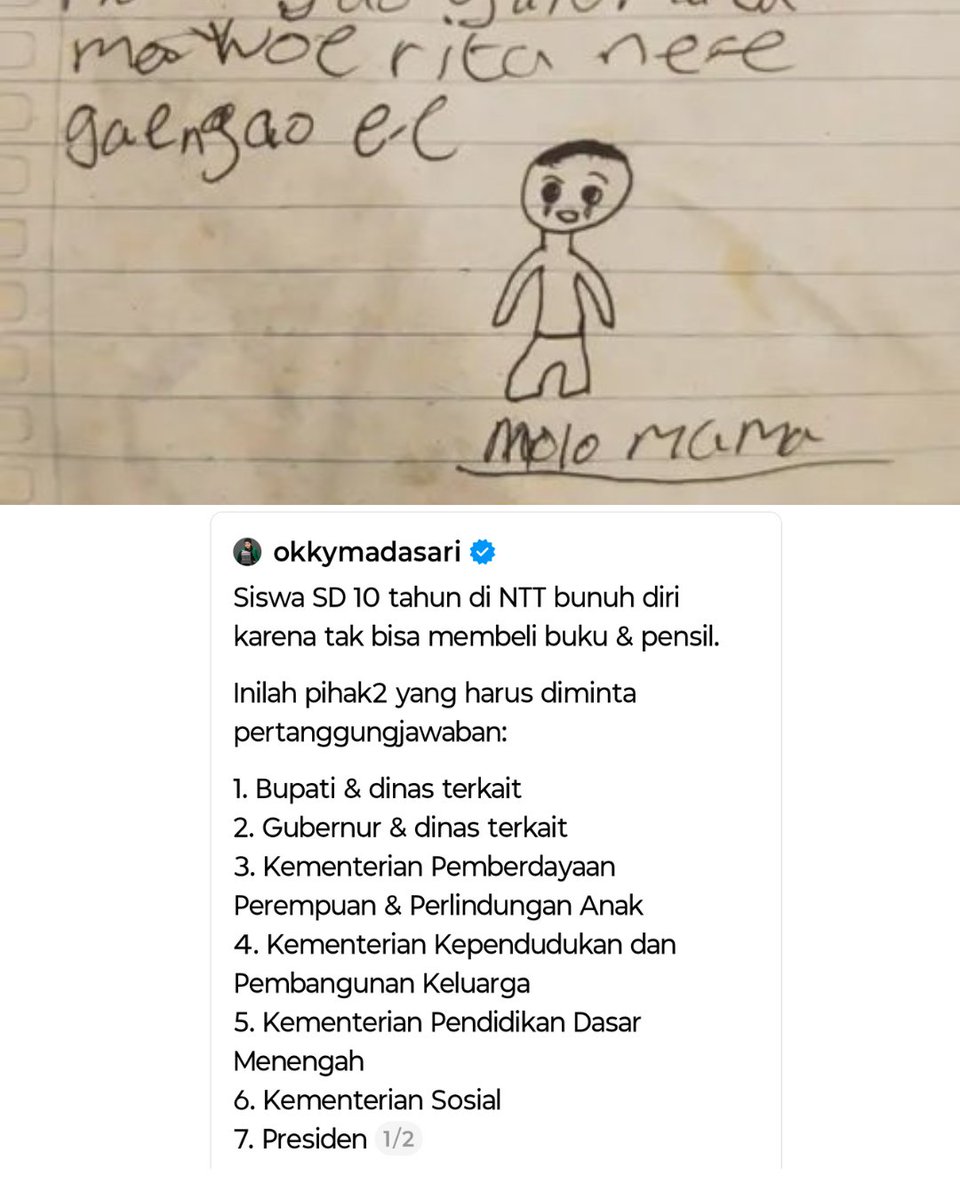 rita
gaengao ee
molo mama
okkymadasari
Siswa SD 10 tahun di NTT bunuh diri
karena tak bisa membeli buku & pensil.
Inilah pihak2 yang harus diminta
pertanggungjawaban:
1. Bupati & dinas terkait
2. Gubernur & dinas terkait
3. Kementerian Pemberdayaan
Perempuan & Perlindungan Anak
4. Kementerian Kependudukan dan
Pembangunan Keluarga
5. Kementerian Pendidikan Dasar
Menengah
6. Kementerian Sosial
7. Presiden 1/2